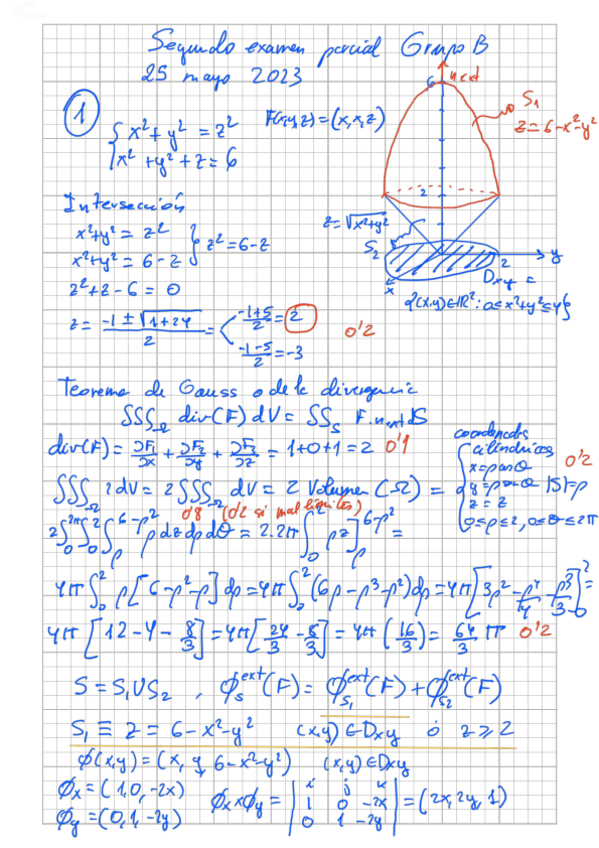 Segundo examen parcial Grupo B
25 mayo 2023
1
{ x²+y² = z²
{ x²+y²+z = 6
F(x,y,z)=(x,x,z)
6
next
S₁
z=6-x²-y²
2
z=√x²+y²
S₂
y
2
x
Dxy =
{(x,y)∈ℝ²: 0≤x²+y²≤4}
Intersección
x²+y² = z²
x²+y² = 6-z } z²=6-z
z²+z-6 = 0
z = (-1±√1+24)/2 = < (-1+5)/2 = 2
(-1-5)/2 = -3
0'2
Teorema de Gauss o de la divergencia
∫∫∫Ω div(F) dV = ∫∫S F·next dS
div(F) = ∂F₁/∂x + ∂F₂/∂y + ∂F₃/∂z = 1+0+1 = 2 0'1
coordenadas
cilíndricas
x=ρcosθ
y=ρsenθ |J|=ρ
z=z
0≤ρ≤2, 0≤θ≤2π
0'2
∫∫∫Ω 2dV = 2∫∫∫Ω dV = 2 Volumen(Ω) =
0'8 (0'2 si mal límites)
2∫₀^2π ∫₀^2 ∫ρ^6-ρ² ρ dz dρ dθ = 2·2π ∫₀^2 ρz]ρ^6-ρ² =
4π ∫₀^2 ρ[6-ρ²-ρ]dρ = 4π ∫₀^2 (6ρ-ρ³-ρ²)dρ = 4π [3ρ² - ρ⁴/4 - ρ³/3]₀^2 =
4π [12-4-8/3] = 4π [24/3 - 8/3] = 4π (16/3) = 64/3 π 0'2
S = S₁∪S₂ , ϕ_S^ext(F) = ϕ_S₁^ext(F) + ϕ_S₂^ext(F)
S₁ ≡ z = 6-x²-y² (x,y)∈Dxy ó z≥2
ϕ(x,y) = (x, y, 6-x²-y²) (x,y)∈Dxy
ϕx = (1,0,-2x)
ϕy = (0,1,-2y)
ϕx×ϕy = | i j k |
| 1 0 -2x | = (2x,2y,1)
| 0 1 -2y |